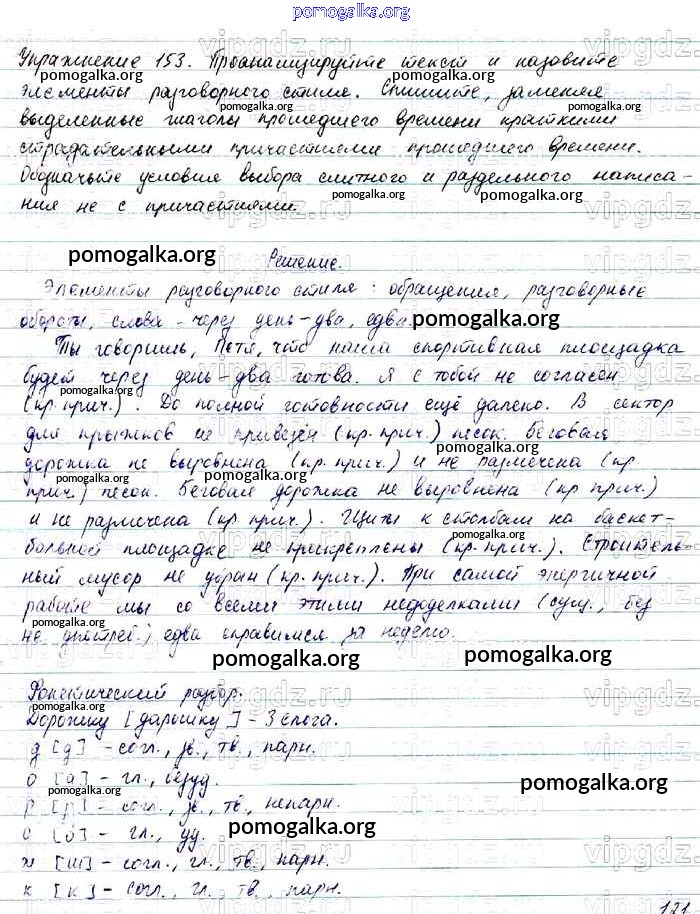 pomogalka.org
Упражнение 153. Проанализируйте текст и назовите
pomogalka.org pomogalka.org
элементы разговорного стиля. Спишите, заменяя
pomogalka.org
выделенные глаголы прошедшего времени краткими
pomogalka.org
страдательными причастиями прошедшего времени.
Обозначьте условия выбора слитного и раздельного написа-
pomogalka.org
ния не с причастиями.
pomogalka.org
Решение.
Элементы разговорного стиля: обращения, разговорные
обороты, слова - через день-два, едва.
pomogalka.org
Ты говоришь, Петя, что наша спортивная площадка
будет через день-два готова. Я с тобой не согласен
pomogalka.org
(кр. прич.). До полной готовности ещё далеко. В сектор
для прыжков не привезён (кр. прич.) песок. Беговая
pomogalka.org
дорожка не выровнена (кр. прич.) и не размечена (кр.
pomogalka.org
прич.) песок. Беговая дорожка не выровнена (кр прич.)
и не размечена (кр. прич.). Щиты к столбам на баскет-
pomogalka.org
больной площадке не прикреплены (кр. прич.). Строитель-
ный мусор не убран (кр. прич.). При самой энергичной
pomogalka.org
работе мы со всеми этими недоделками (сущ., без
не употреб.) едва справимся за неделю.
pomogalka.org pomogalka.org
Фонетический разбор.
Дорожку [дарошку] - 3 слога.
д [д] - согл., зв., тв., парн.
о [а] - гл., безуд.
pomogalka.org
р [р] - согл., зв., тв., непарн.
о [о] - гл., уд.
pomogalka.org
ж [ш] - согл., гл., тв., парн.
к [к] - согл., гл., тв., парн.
121